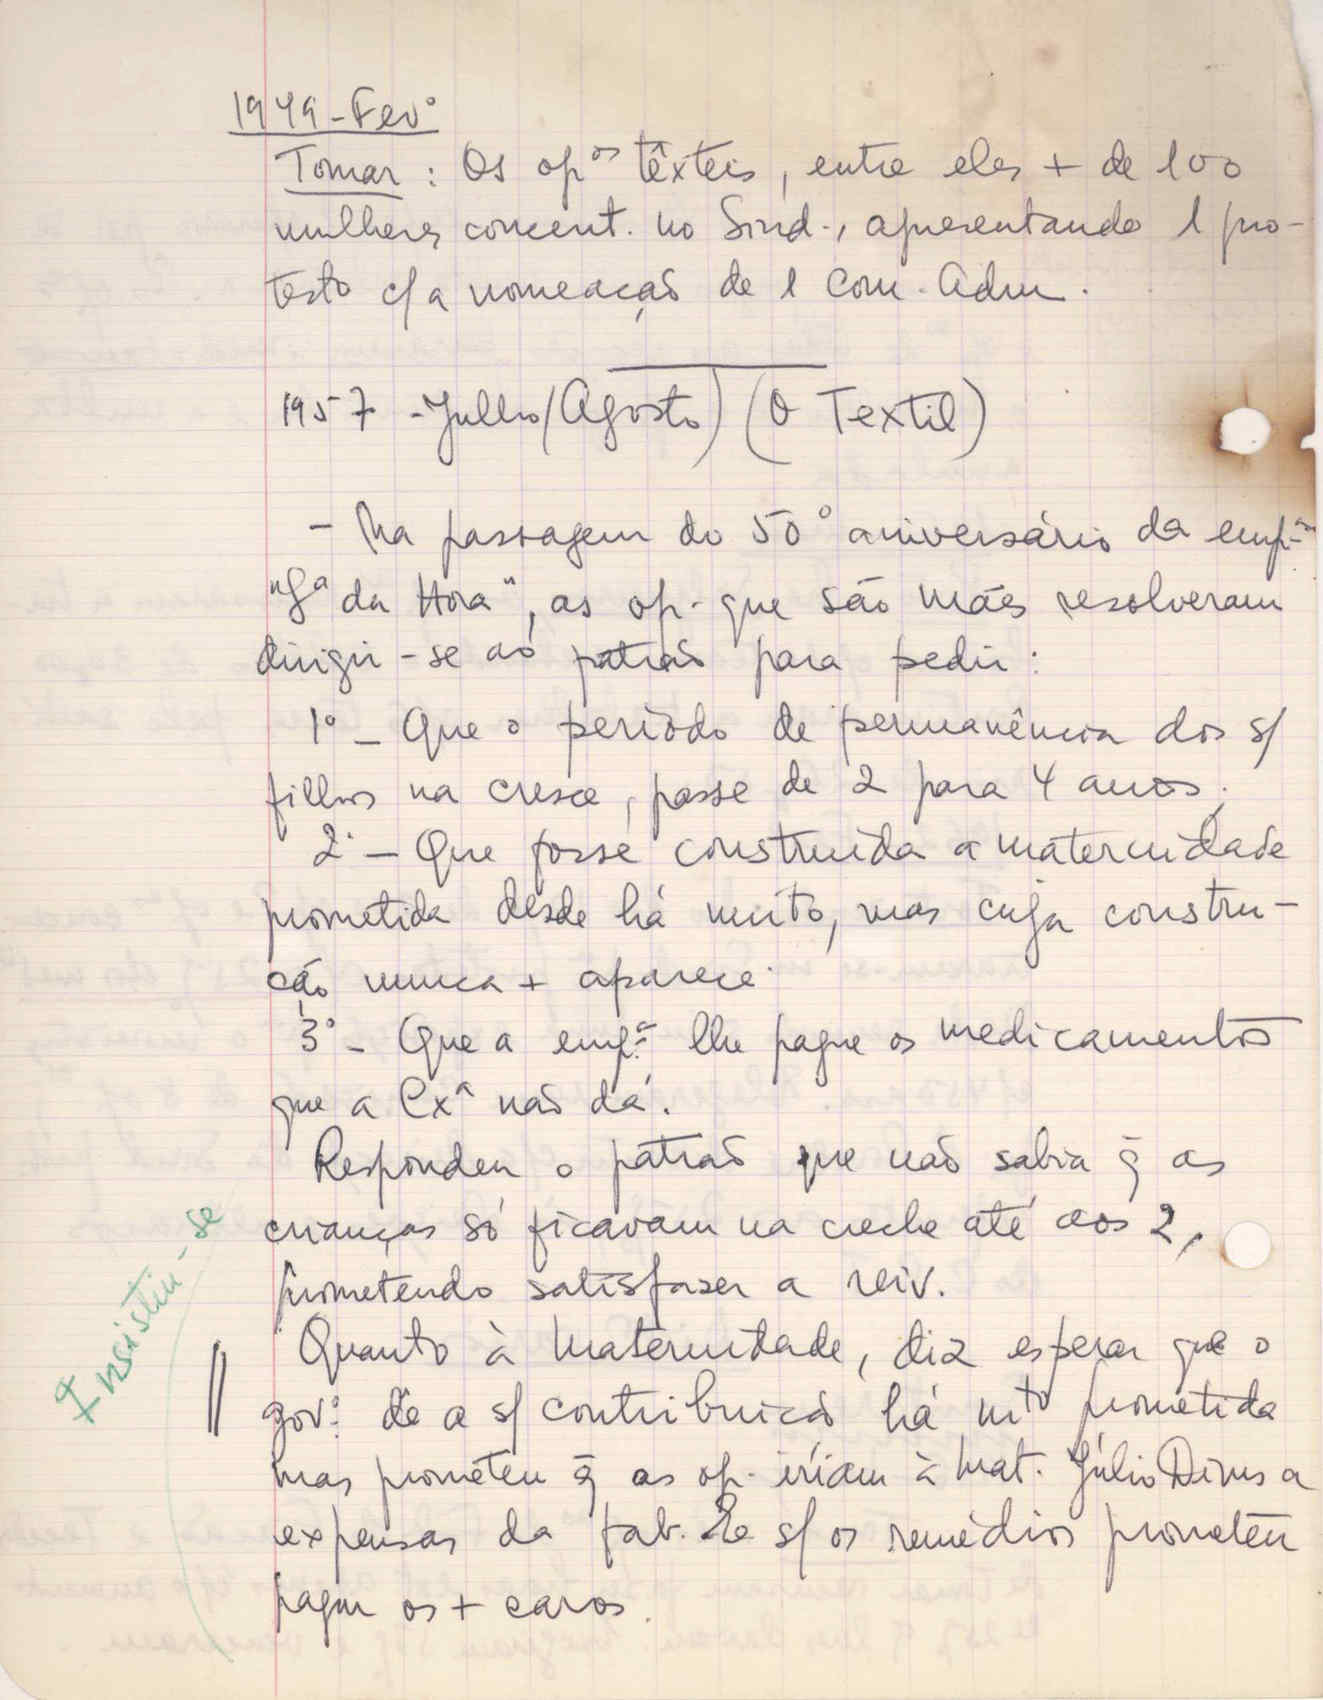 1949 - Fevº
Tomar : Os opºs têxteis, entre eles + de 100
mulheres concent. no Sind., apresentando 1 pro-
testo c/ a nomeação de 1 Com. Adm.
1957 - Julho/Agosto) (O Textil)
- Na passagem do 50º aniversário da emp.ª
"Sª da Hora", as op. que são mães resolveram
dirigir-se ao patrão para pedir :
1º - Que o período de permanência dos s/
filhos na cresce, passe de 2 para 4 anos;
2º - Que fosse construída a maternidade
prometida desde há muito, mas cuja constru-
ção nunca + aparece.
3º - Que a emp.ª lhe pague os medicamentos
que a Cxª não dá.
Respondeu o patrão que não sabia q̃ as
crianças só ficavam na creche até aos 2,
prometendo satisfazer a reiv.
Quanto à Maternidade, diz esperar que o
gov.º dê a s/ contribuição há mto prometida
mas prometeu q̃ as op. iriam à Mat. Júlio Dinis a
expensas da fab. E s/ os remédios prometeu
pagar os + caros.
Insistiu-se